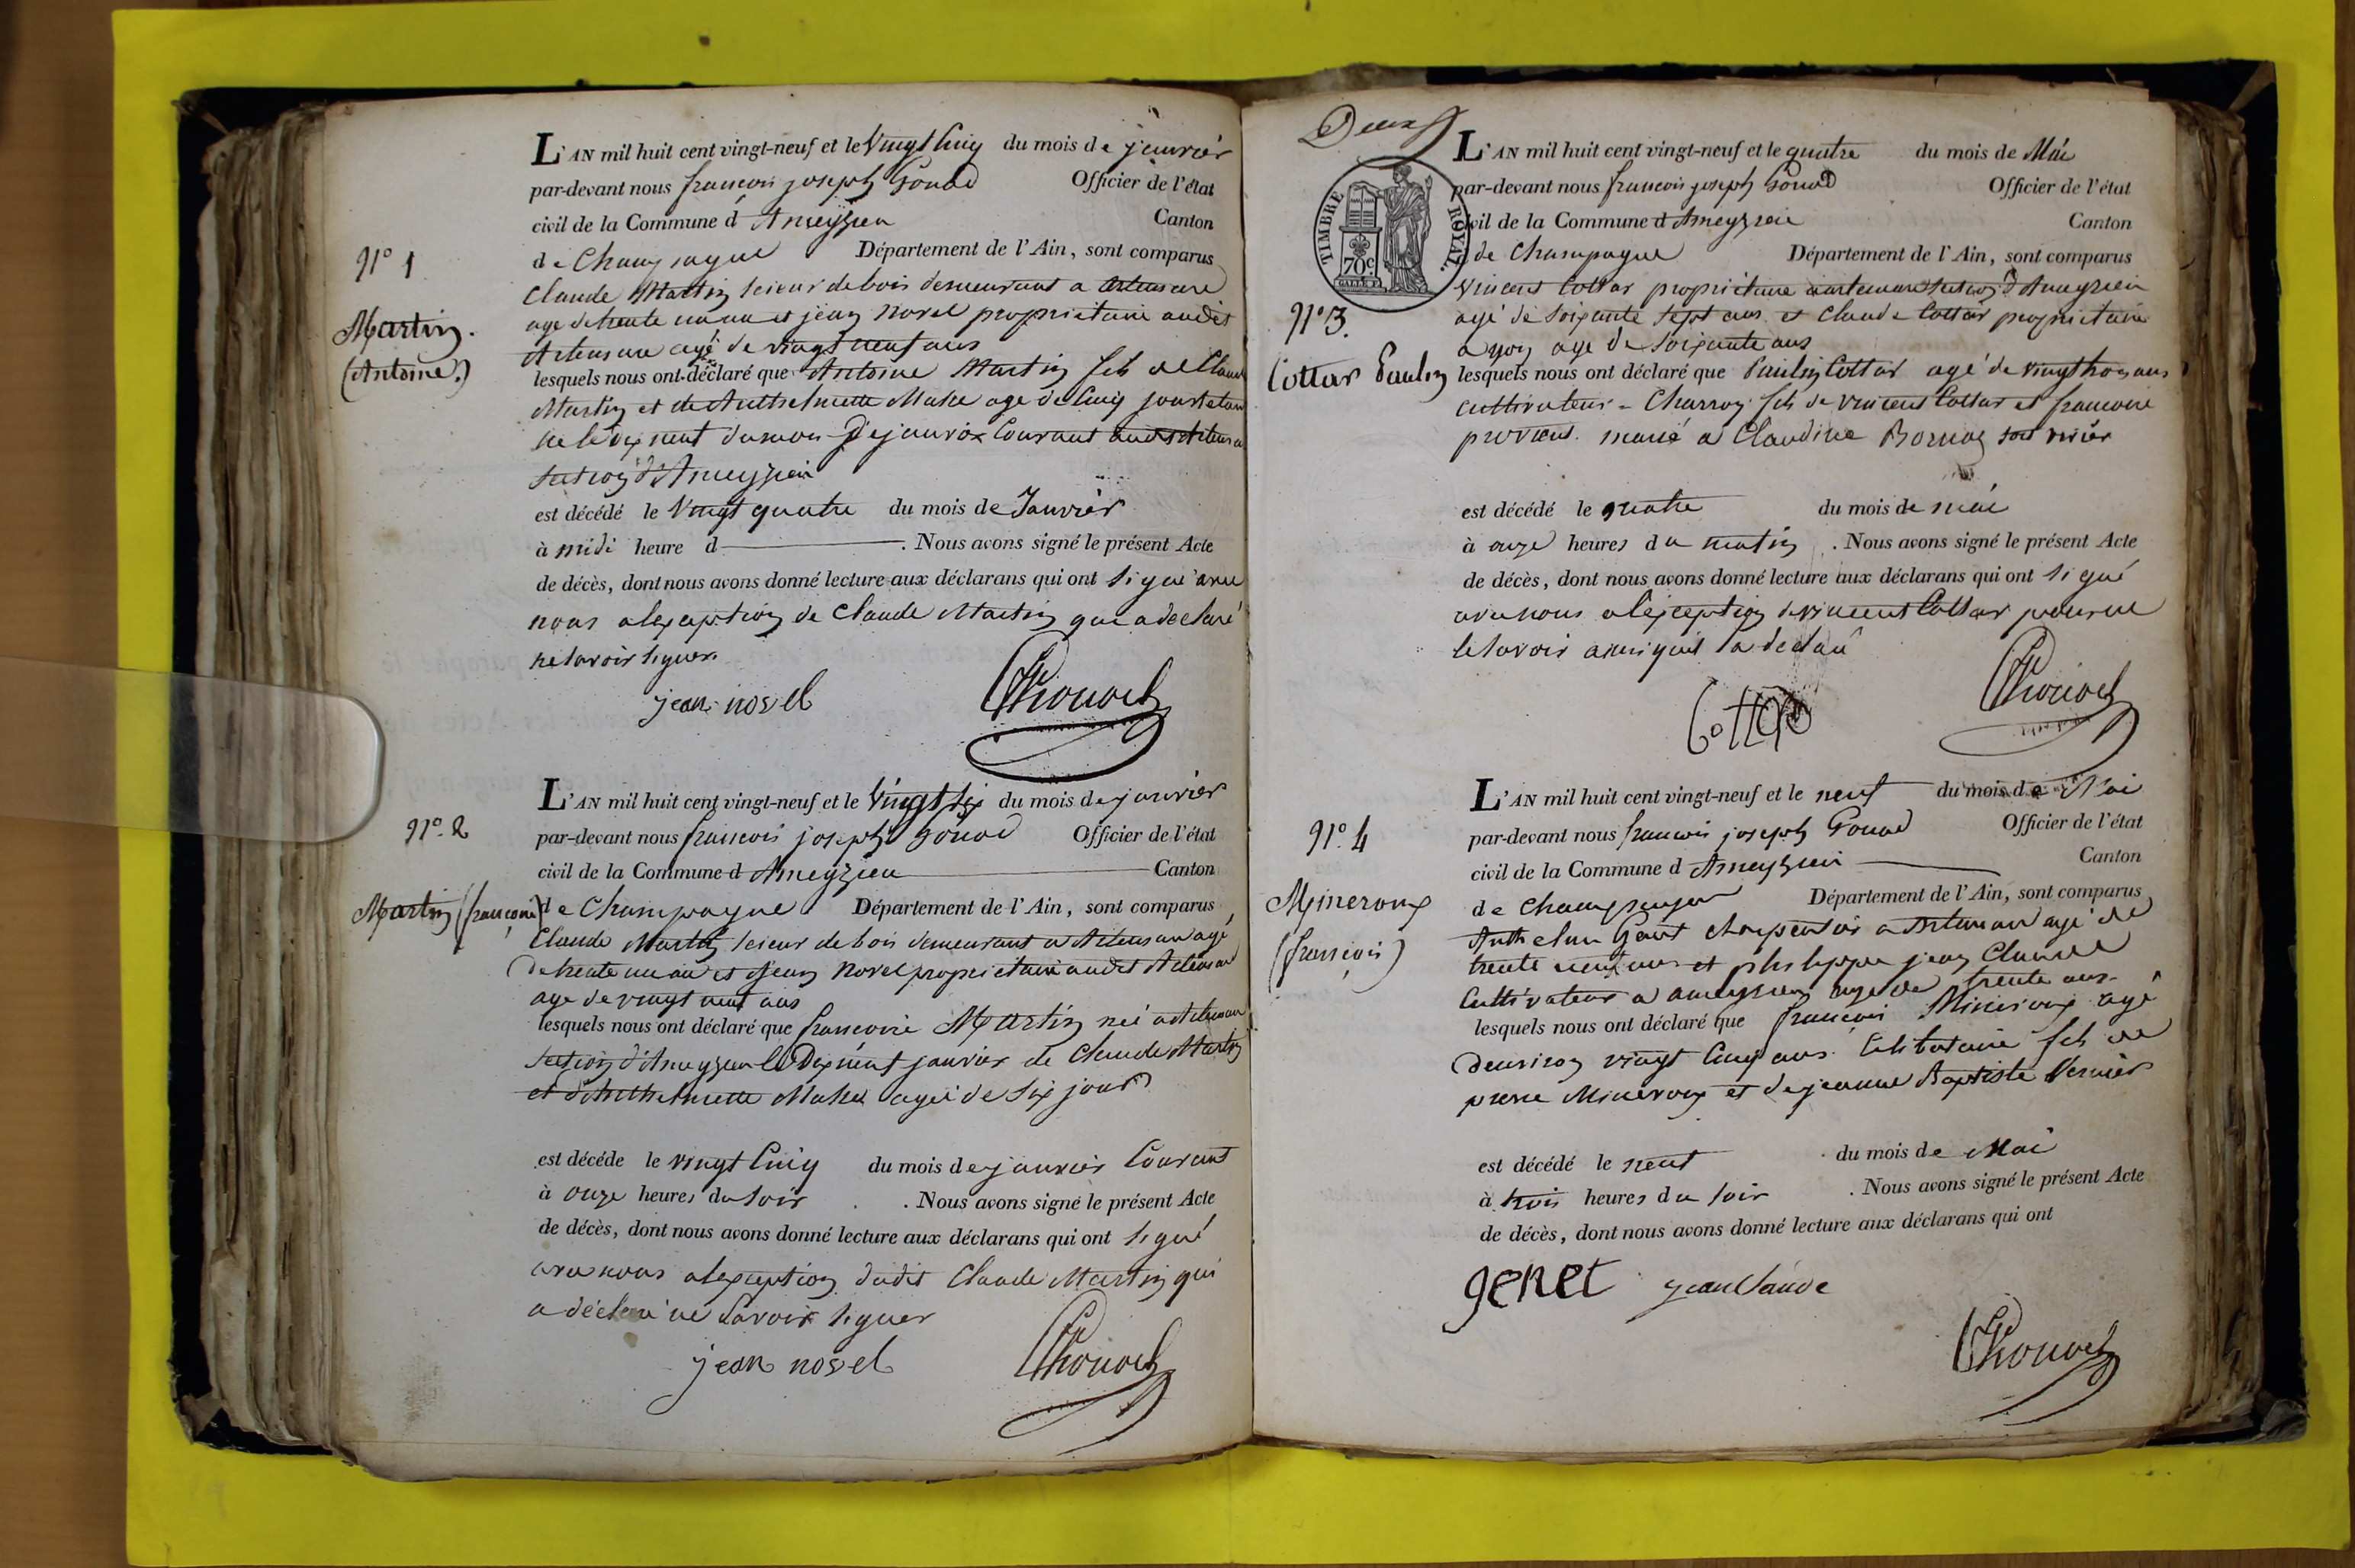 N° 1
Martin.
(Antoine.)
L'AN mil huit cent vingt-neuf et le vingt cinq du mois de janvier
par-devant nous françois joseph Gonod Officier de l'état
civil de la Commune d Ameyzieu Canton
de Champagne Département de l'Ain, sont comparus
Claude Martin scieur de bois demeurant a Artemare
age de trente un an et jean Novel proprietaire audit
Artemare agé de vingt neuf ans
lesquels nous ont déclaré que Antoine Martin fils de Claude
Martin et de Anthelmette age de Cinq jours etant
ne le dix neuf du mois de janvier Courant audit Artemare
section d'Ameyzieu
est décédé le vingt quatre du mois de Janvier
à midi heure d . Nous avons signé le présent Acte
de décès, dont nous avons donné lecture aux déclarans qui ont signé avec
nous a lexception de Claude Martin qui a declaré
ne savoir signer.
jean novel
N° 2
Martin (françoise)
L'AN mil huit cent vingt-neuf et le vingt six du mois de janvier
par-devant nous françois joseph Gonod Officier de l'état
civil de la Commune d Ameyzieu Canton
de Champagne Département de l'Ain, sont comparus
Claude Martin scieur de bois demeurant a Artemare agé
de trente un an et Jean Novel proprietaire audit Artemare
age de vingt neuf ans
lesquels nous ont déclaré que francoise Martin née a Artemare
section d'Ameyzieu le Dix neuf janvier de Claude Martin
et d'Anthelmette agée de six jours
est décéde le vingt cinq du mois de janvier Courant
à onze heures du soir . Nous avons signé le présent Acte
de décès, dont nous avons donné lecture aux déclarans qui ont signé
avec nous a lexception dudit Claude Martin qui
a déclaré ne savoir signer
jean novel
Deux
TIMBRE ROYAL.
70c
N° 3.
Cottar Paulin
L'AN mil huit cent vingt-neuf et le quatre du mois de Mai
par-devant nous francois joseph Gonod Officier de l'état
civil de la Commune d Ameyzieu Canton
de Champagne Département de l'Ain, sont comparus
Vincent Cottar proprietaire a artemare section d'Ameyzieu
agé de soixante sept ans et Claude Cottar proprietaire
a yon age de soixante ans
lesquels nous ont déclaré que Paulin Cottar agé de vingt trois ans
cultivateur a Charron fils de vincent Cottar et francoise
marié a Claudine
est décédé le quatre du mois de mai
à onze heures du matin . Nous avons signé le présent Acte
de décès, dont nous avons donné lecture aux déclarans qui ont signé
avec nous a lexception de vincent Cottar pour ne
le savoir ainsi quil la declaré
Cottar
N° 4
Mineroux
(françois)
L'AN mil huit cent vingt-neuf et le neuf du mois de Mai
par-devant nous francois joseph Gonod Officier de l'état
civil de la Commune d Ameyzieu Canton
de Champagne Département de l'Ain, sont comparus
Anthelme charpentier a Artemare agé de
trente neuf ans et philippe jean Claude
Cultivateur a ameyzieu age de trente ans.
lesquels nous ont déclaré que françois Mineroux agé
denviron vingt Cinq ans. Celibataire fils de
pierre Mineroux et de jeanne Baptiste Vernier
est décédé le neuf du mois de Mai
à trois heures du soir . Nous avons signé le présent Acte
de décès, dont nous avons donné lecture aux déclarans qui ont
genet jean Claude